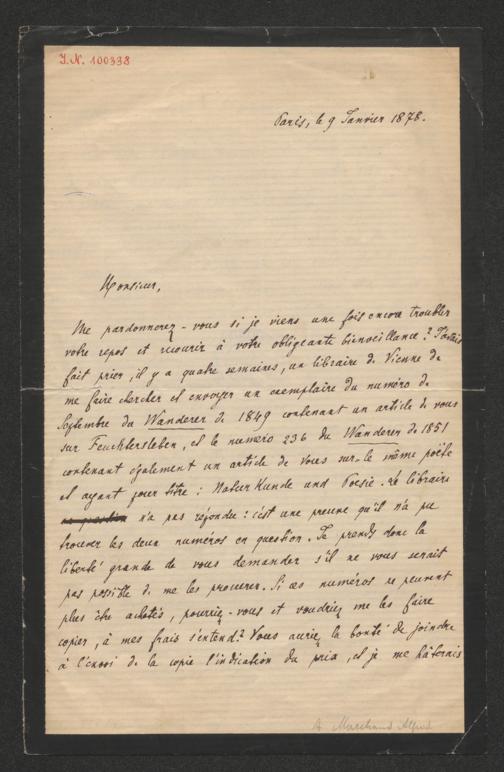 I.N. 100338
Paris, le 9 Janvier 1878.
Monsieur,
Me pardonnerez-vous si je viens une fois encore troubler
votre repos et recourir à votre obligeante bienveillance? J'avais
fait prier, il y a quatre semaines, un libraire de Vienne de
me faire chercher et envoyer un exemplaire du numéro de
Septembre du Wanderer de 1849 contenant un article de vous
sur Feuchtersleben, et le numéro 236 du Wanderer de 1851
contenant également un article de vous sur le même poëte
et ayant pour titre: Naturkunde und Poesie. Le libraire
n'a pas répondu: c'est une preuve qu'il n'a pu
trouver les deux numéros en question. Je prends donc la
liberté grande de vous demander s'il ne vous serait
pas possible de me les procurer. Si ces numéros ne peuvent
plus être achetés, pourriez-vous et voudriez me les faire
copier, à mes frais s'entend? Vous auriez la bonté de joindre
à l'envoi de la copie l'indication du prix, et je me hâterais
A Marchand Alfred